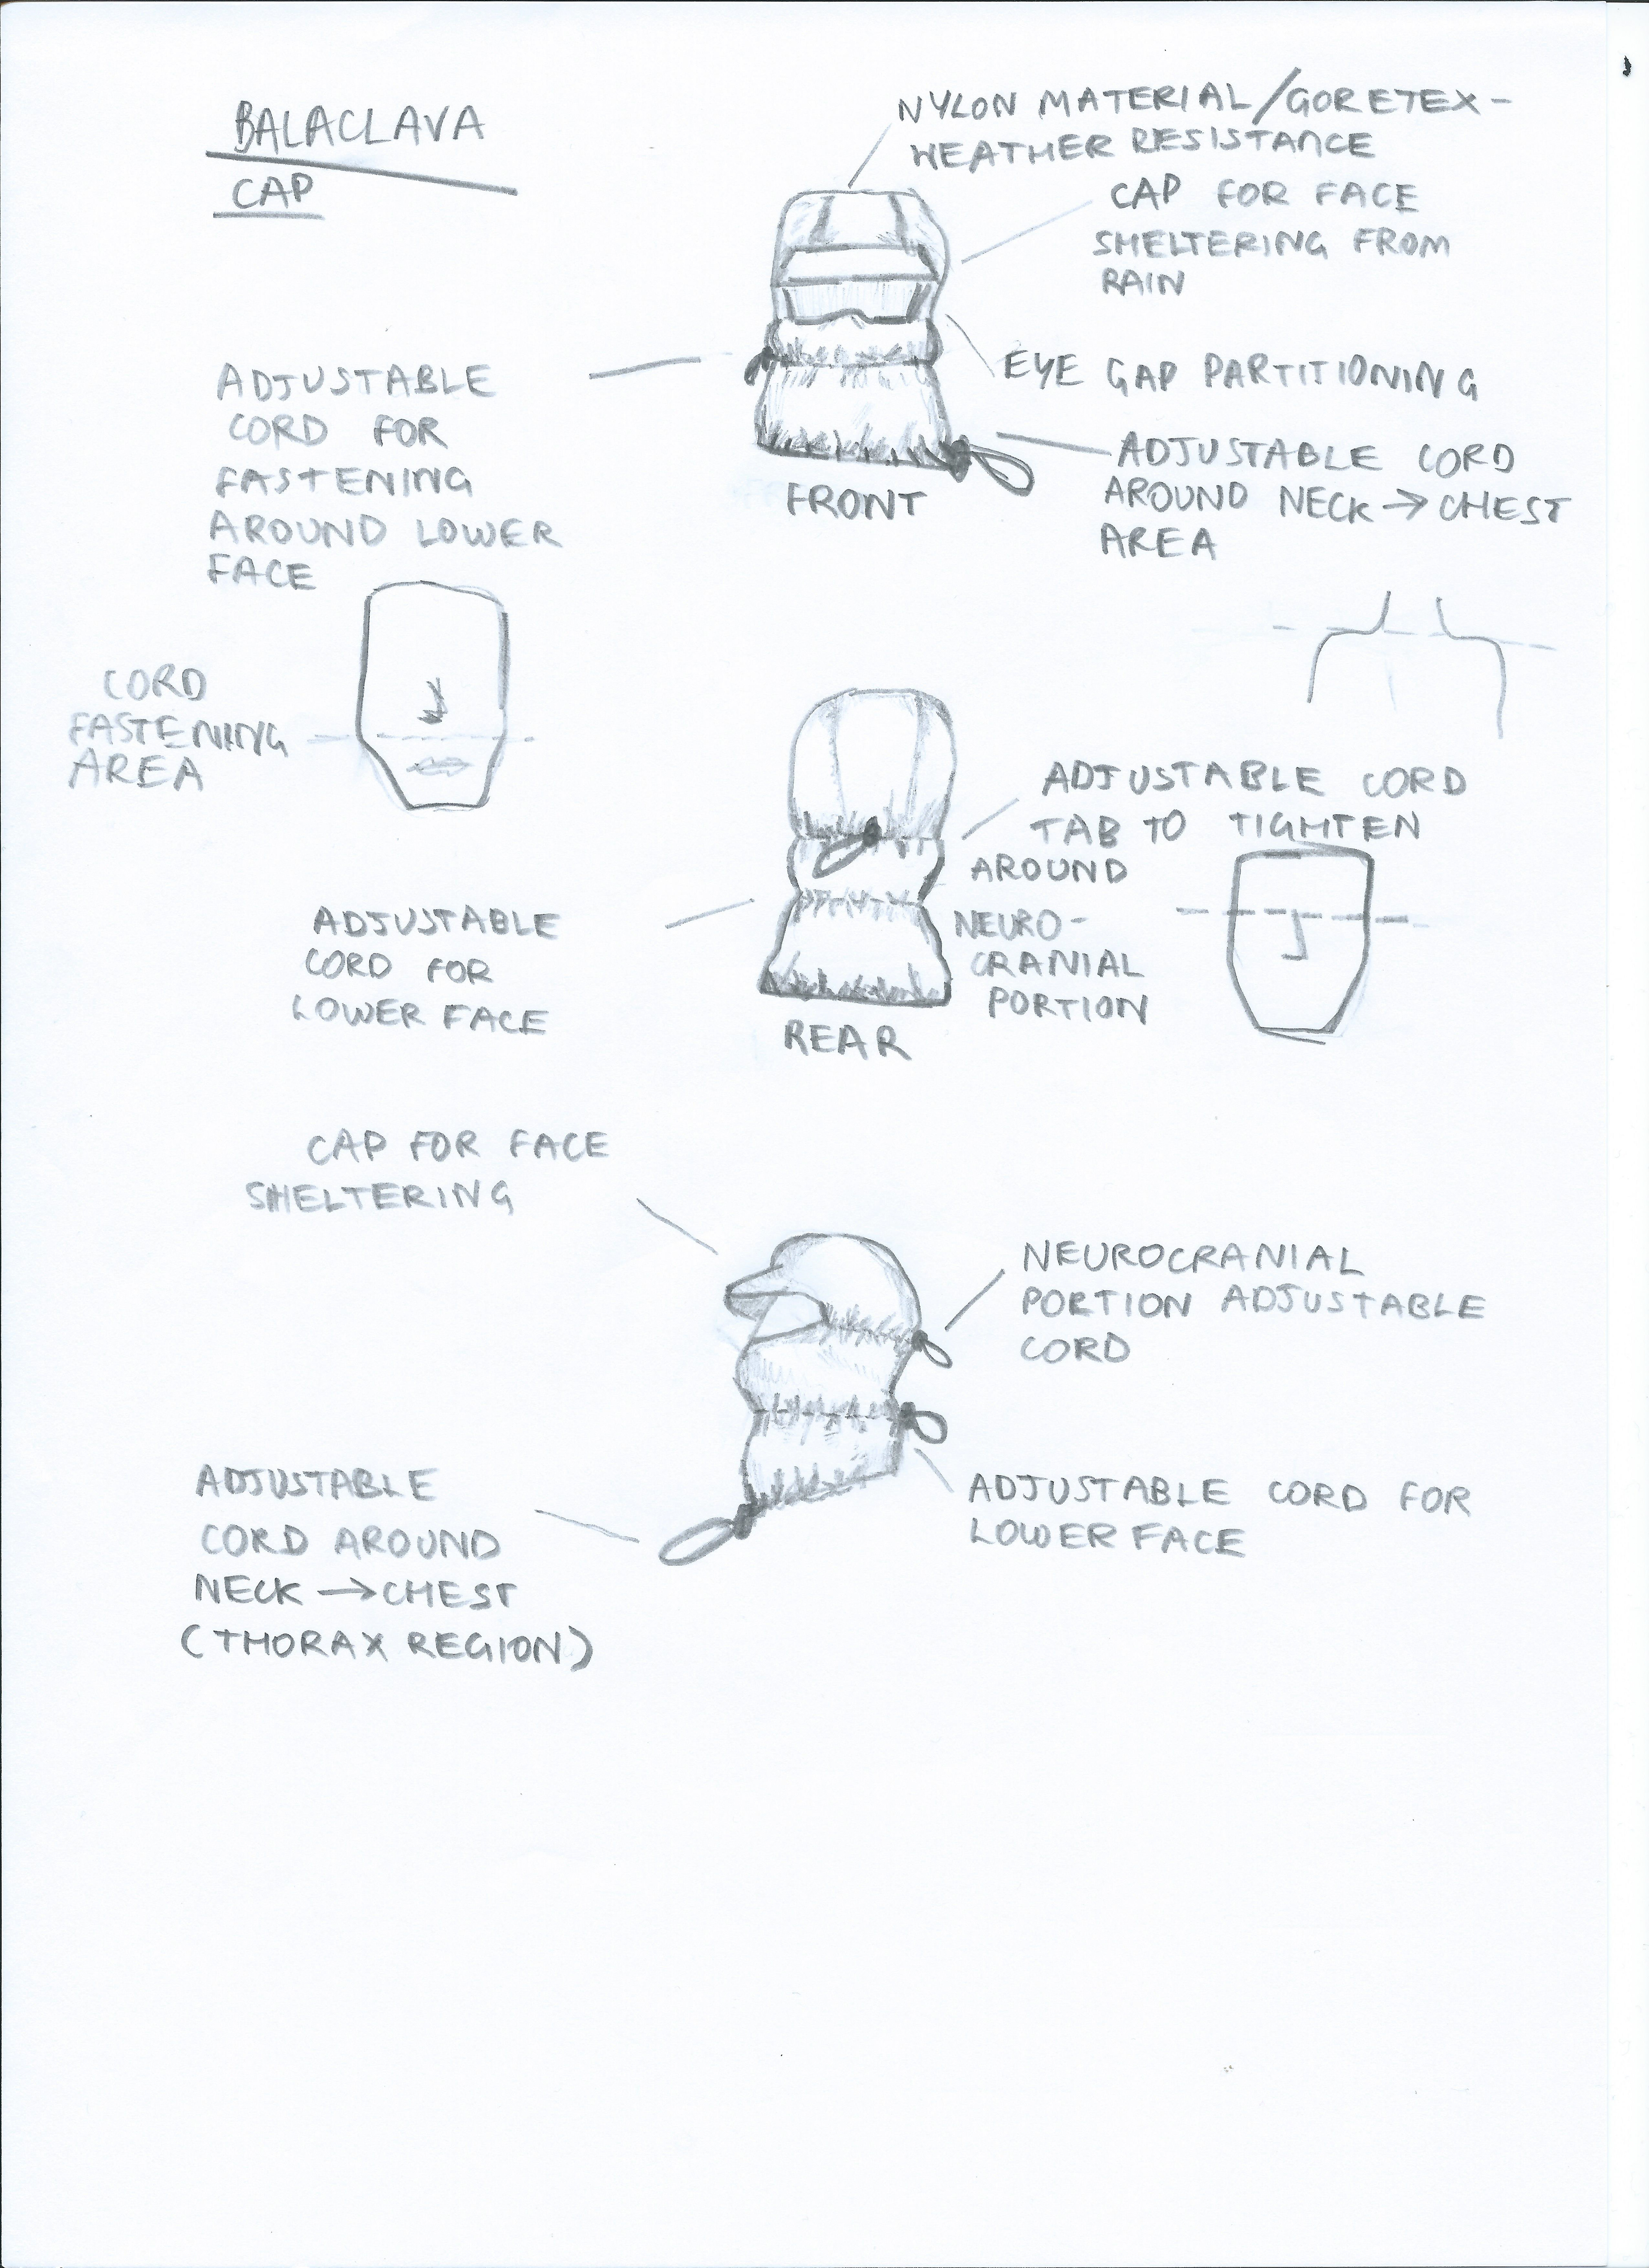 BALACLAVA
CAP
NYLON MATERIAL/GORETEX -
WEATHER RESISTANCE
CAP FOR FACE
SHELTERING FROM
RAIN
EYE GAP PARTITIONING
ADJUSTABLE
CORD FOR
FASTENING
AROUND LOWER
FACE
ADJUSTABLE CORD
AROUND NECK → CHEST
AREA
FRONT
CORD
FASTENING
AREA
ADJUSTABLE CORD
TAB TO TIGHTEN
AROUND
NEURO-
CRANIAL
PORTION
ADJUSTABLE
CORD FOR
LOWER FACE
REAR
CAP FOR FACE
SHELTERING
NEUROCRANIAL
PORTION ADJUSTABLE
CORD
ADJUSTABLE
CORD AROUND
NECK → CHEST
(THORAX REGION)
ADJUSTABLE CORD FOR
LOWER FACE